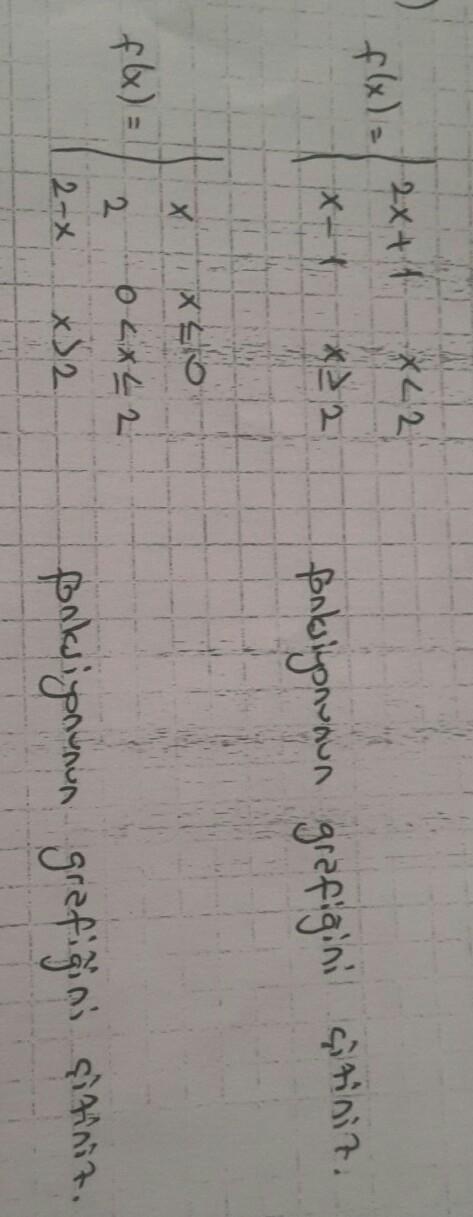 )
f(x) = | 2x+1 x<2
x-1 x≥2 fonksiyonunun grafiğini çiziniz.
x x≤0
f(x) = | 2 0<x≤2
2-x x>2 fonksiyonunun grafiğini çiziniz.